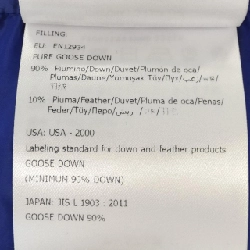 FILLING
EU EN12934
PURE GOOSE DOWN
90% Piumino/Down/Duvet/Plumon de oca/
Plumas/Dacne/
10% Piuma/Feather/Duvet/Pluma de oca/Penas/
Feder/Túy/Перо/
USA: USA - 2000
Labeling standard for down and feather products
GOOSE DOWN
(MINIMUM 90% DOWN)
JAPAN: JIS L 1903 : 2011
GOOSE DOWN 90%